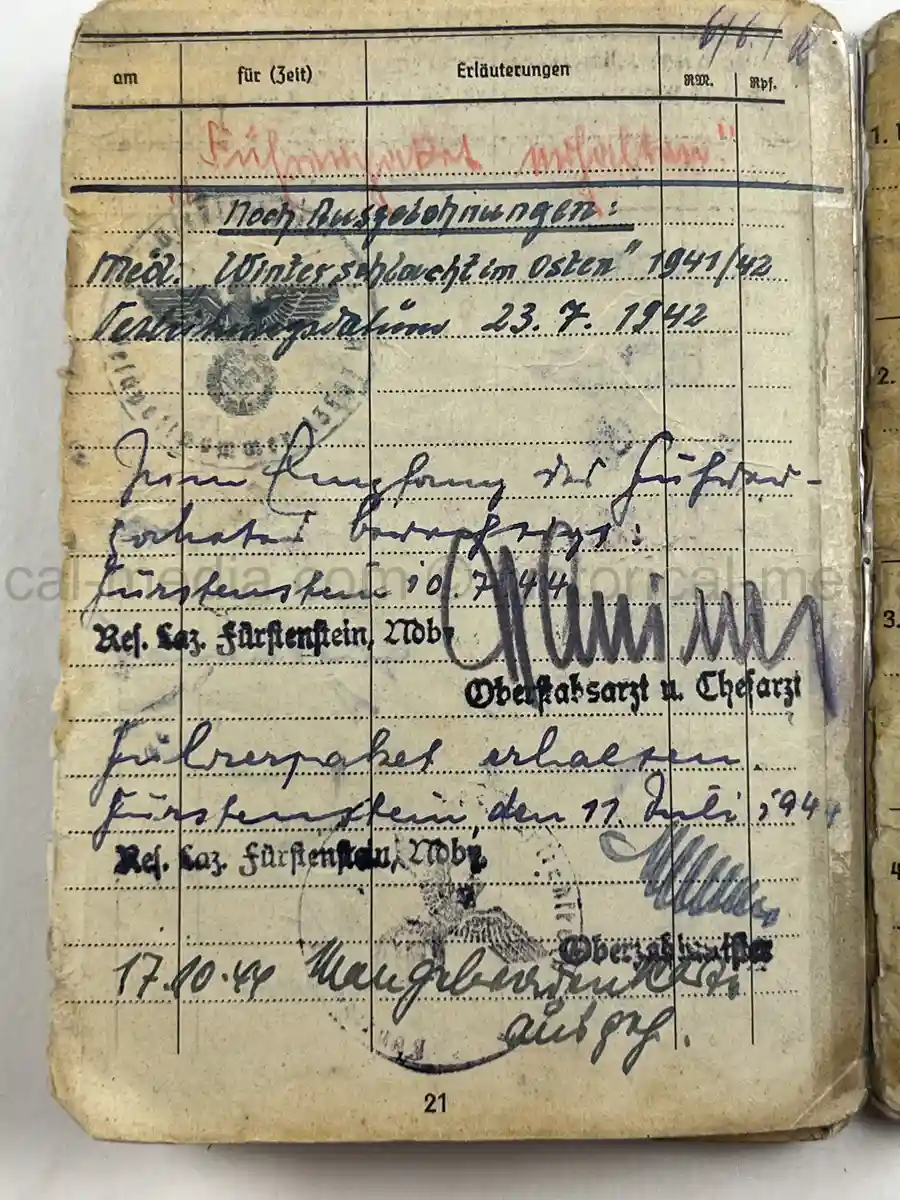 am für (Zeit) Erläuterungen RM. Rpf.
"Führerpaket erhalten"
Noch Auszeichnungen:
Med. „Winterschlacht im Osten" 1941/42
Verleihungsdatum 23. 7. 1942
Feldpostnummer
Zum Empfang des Führer-
paketes berechtigt:
Fürstenstein 10.7.44
Res. Laz. Fürstenstein, Ndby
Oberstabsarzt u. Chefarzt
Führerpaket erhalten.
Fürstenstein, den 11. Juli 1944
Res. Laz. Fürstenstein, Ndby.
Oberzahlmeister
17.10.44
ausgeh.
21
1.
2.
3.
4
cal-media.com © historical-media